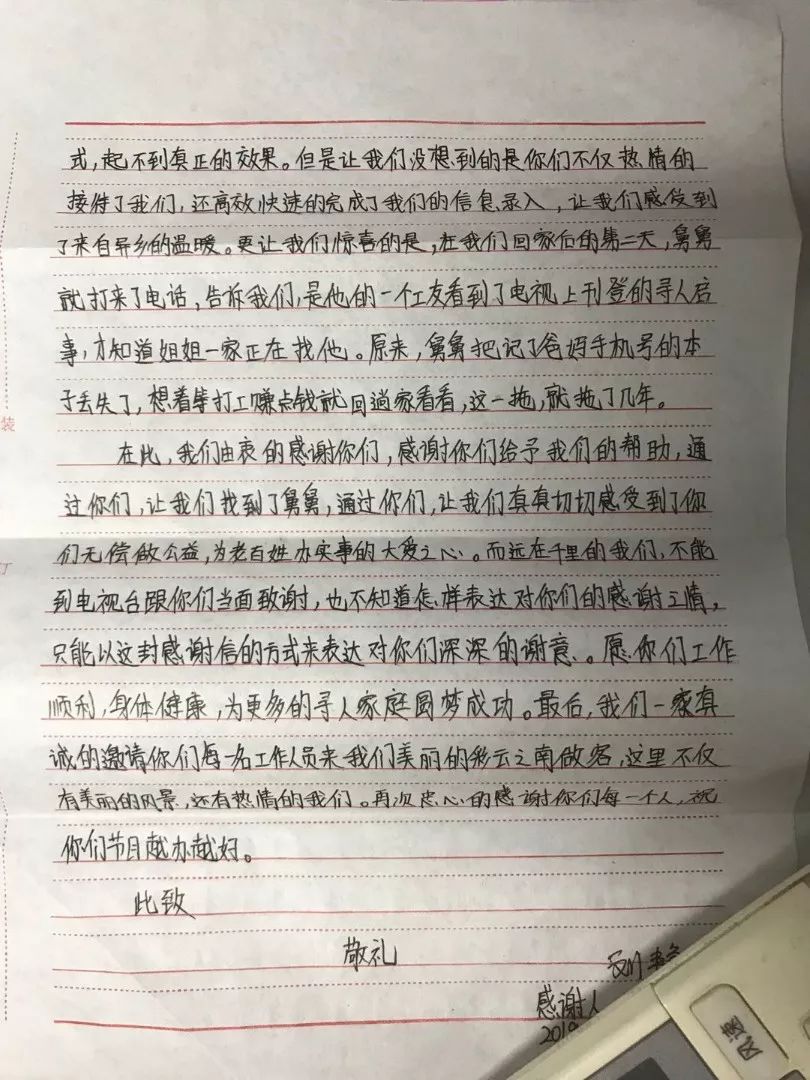 式，起不到真正的效果。但是让我们没想到的是你们不仅热情的
接待了我们，还高效快速的完成了我们的信息录入，让我们感受到
了来自异乡的温暖。更让我们惊喜的是，在我们回家后的第二天，舅舅
就打来了电话，告诉我们，是他的一个工友看到了电视上刊登的寻人启
事，才知道姐姐一家正在找他。原来，舅舅把记了爸妈手机号的本
子丢失了，想着等打工赚点钱就回趟家看看，这一拖，就拖了几年。
在此，我们由衷的感谢你们，感谢你们给予我们的帮助，通
过你们，让我们找到了舅舅，通过你们，让我们真真切切感受到了你
们无偿做公益，为老百姓办实事的大爱之心。而远在千里的我们，不能
到电视台跟你们当面致谢，也不知道怎样表达对你们的感谢之情，
只能以这封感谢信的方式来表达对你们深深的谢意。愿你们工作
顺利，身体健康，为更多的寻人家庭圆梦成功。最后，我们一家真
诚的邀请你们每一名工作人员来我们美丽的彩云之南做客，这里不仅
有美丽的风景，还有热情的我们。再次忠心的感谢你们每一个人，祝
你们节目越办越好。
此致
敬礼
感谢人
2019
装
订
风速